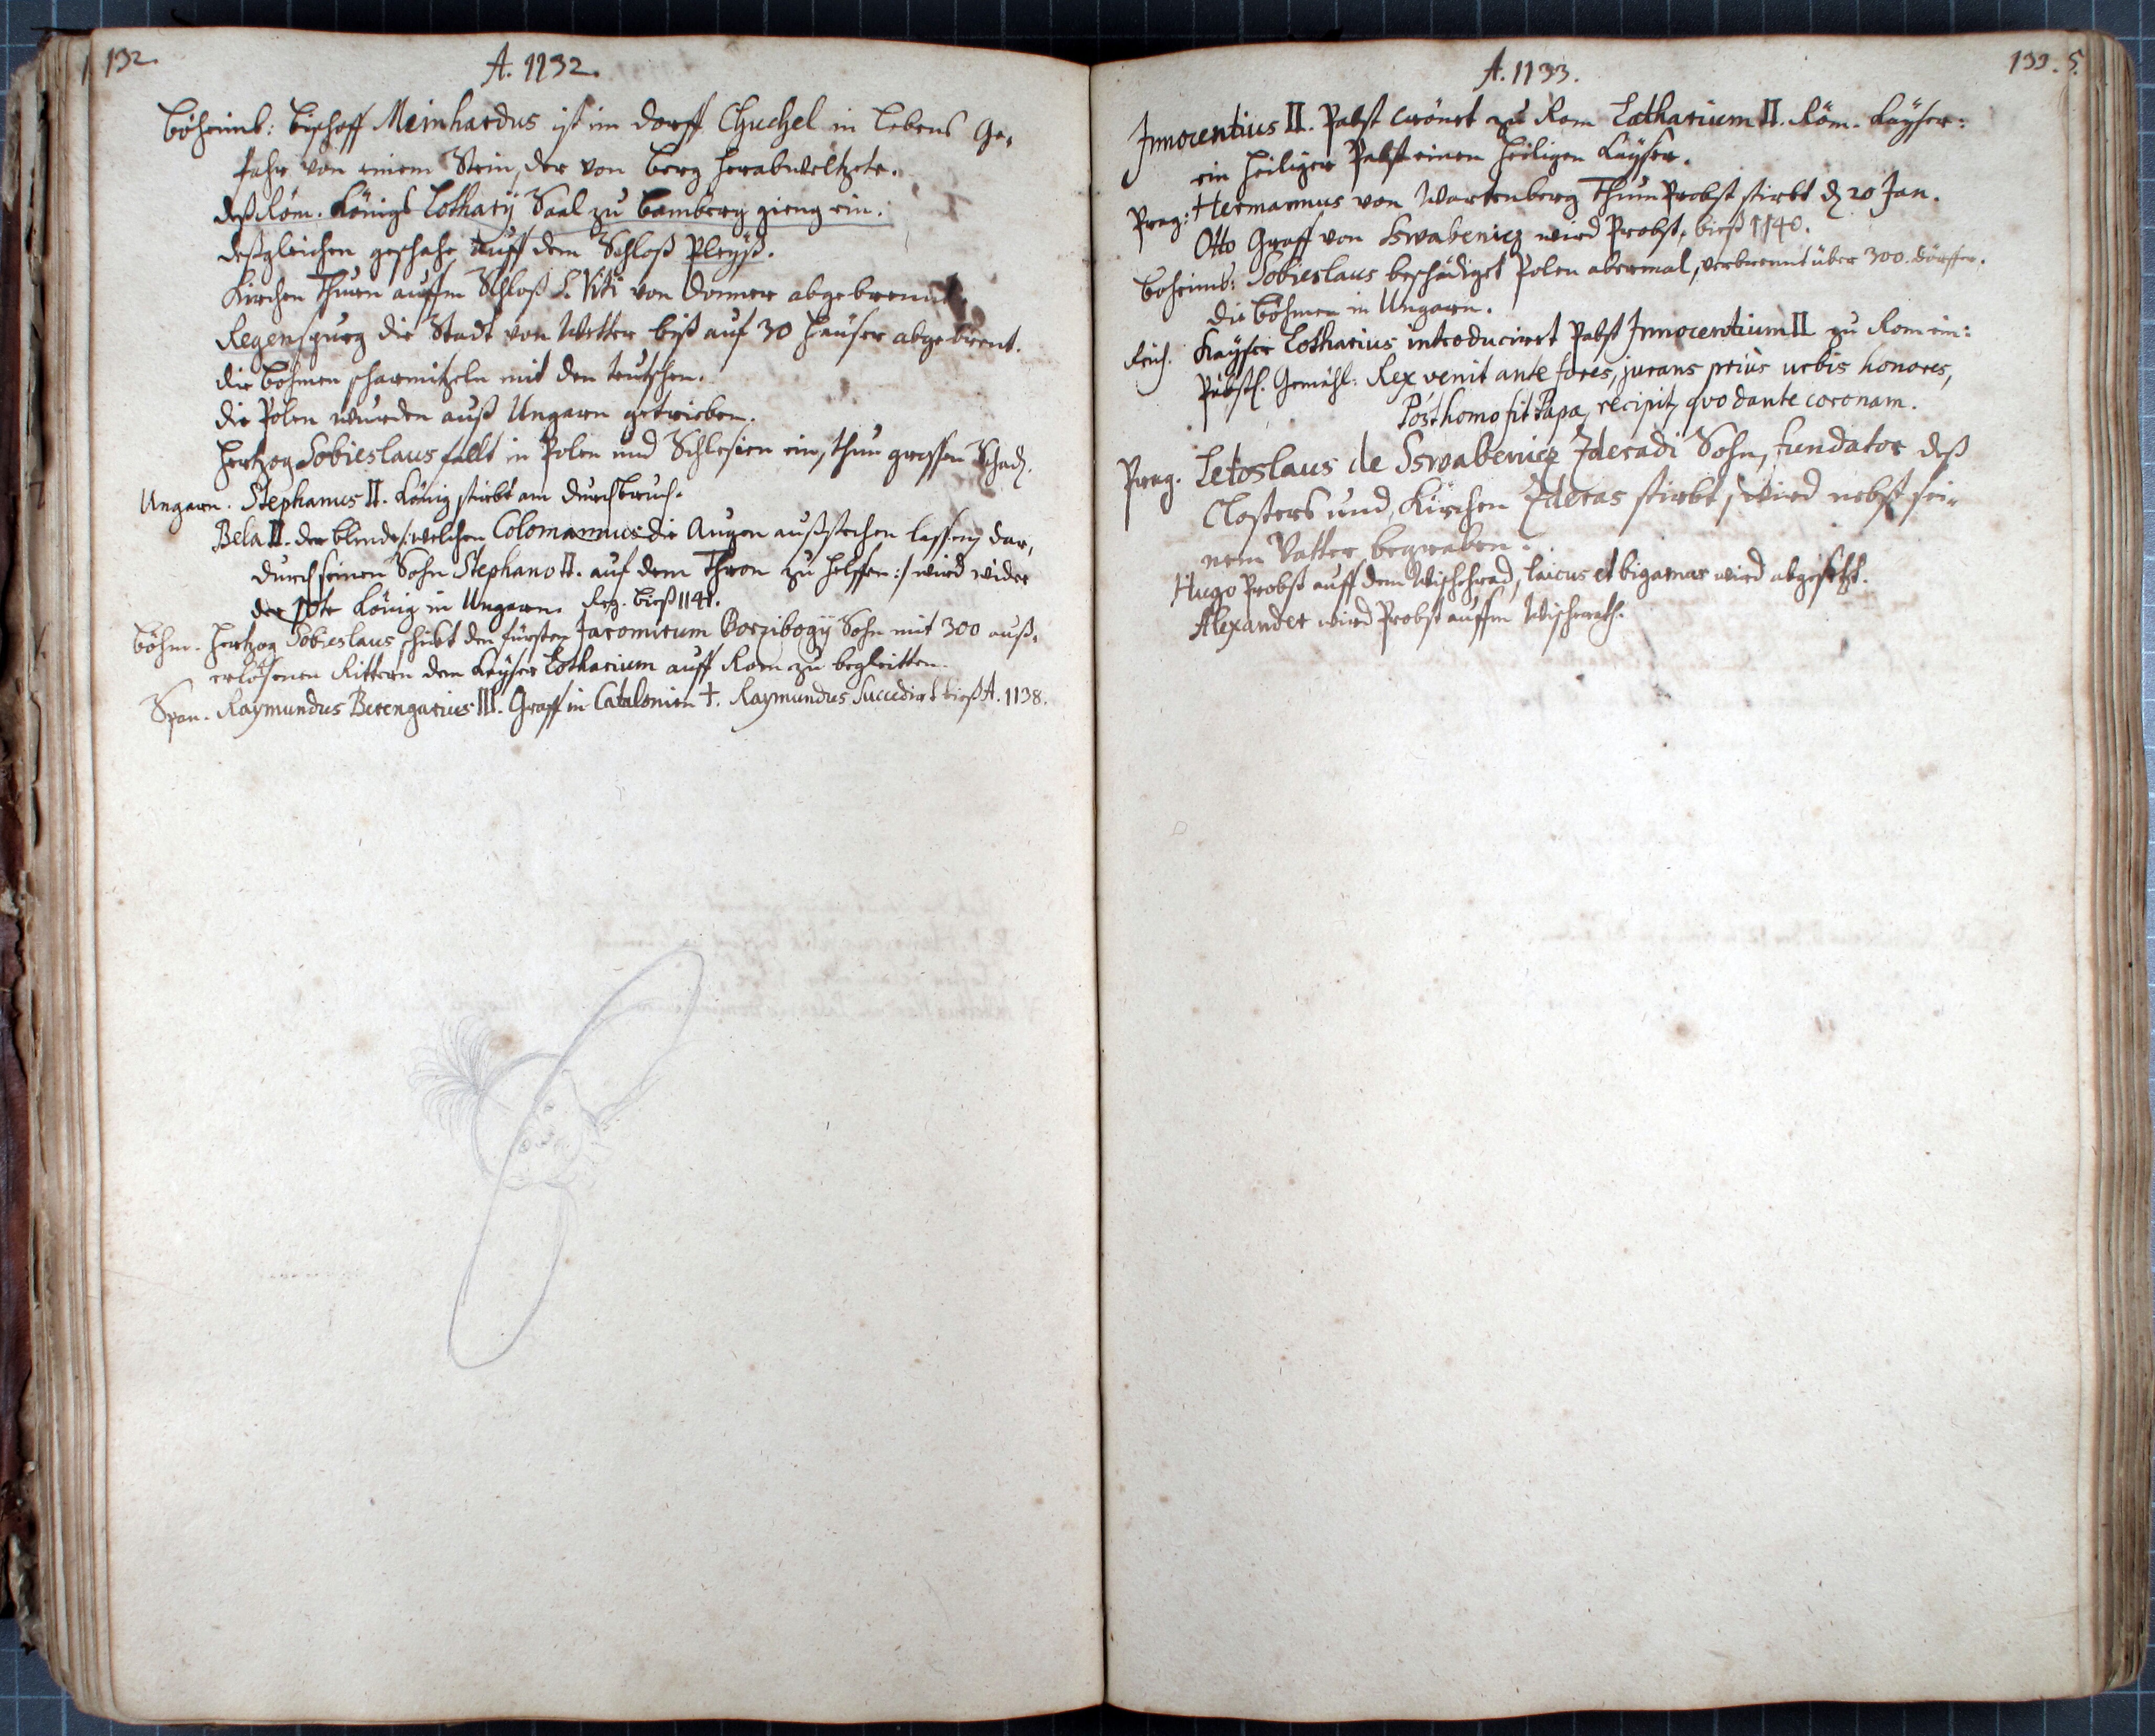 132.
A. 1132.
Böheimb: Bischoff Meinhardus ist im Dorff Chuchel in Lebens Ge-
fahr von einem Stein, der von Berg herabweltzete.
deß Röm. Königs Lotharÿ Saal zu Bamberg gieng ein.
deßgleichen geschahe auff dem Schloß Pleyß.
Kirchen Thurn auffm Schloß S. Viti von Donner abgebrennt.
Regenspurg die Stadt von Wetter biß auf 30 Häuser abgebrent.
die Böhmen scharmitzeln mit den Teutschen.
die Polen wurden auß Ungarn getrieben.
Hertzog Sobieslaus fallt in Polen und Schlesien ein, thun grossen Schad.
Ungarn. Stephanus II. König stirbt am Durchbruch.
Bela II. der Blinde /: welchen Colomannus die Augen außstechen lassen, dar,
durch seinen Sohn Stephano II. auf dem Thron zu helffen :/ wird wider
der 10te König in Ungarn. Reg. bieß 1141.
Böhm. Hertzog Sobieslaus schickt den fürsten Jaromirum Borzibogÿ Sohn mit 300 auß-
erlösenen Rittern dem Kayser Lotharium auff Rom zu begleitten.
Span. Raymundus Berengarius III. Graff in Catalonien †. Raymundus succedirt bieß A. 1138.
A. 1133.
133. 5.
Innocentius II. Pabst crönet zu Rom Lotharium II. Röm. Kayser:
ein heiliger Pabst einen heiligen Kayser.
Prag: Hermannus von Wartenberg Thum Probst stirbt d. 20 Jan.
Otto Graff von Sswabenicz wird Probst, bieß 1140.
Boheimb: Sobieslaus beschädiget Polen abermal, verbrennt über 300. Dörffer.
die Böhmen in Ungarn.
Reich. Kayser Lotharius introducirt Pabst Innocentium II zu Rom ein:
Päbstl. Gemähl: Rex venit ante fores, jurans prius urbis honores,
Post homo fit Papæ, recipit, quo dante coronam.
Prag. Letoslaus de Sswabenicz Zderadi Sohn, fundator deß
Closters und Kirchen Zderas stirbt, wird nebst sei-
nem Vatter begraben.
Hugo Probst auff dem Wischehrad, laicus et bigamus wird abgesetzt.
Alexander wird Probst auffm Wischerath.